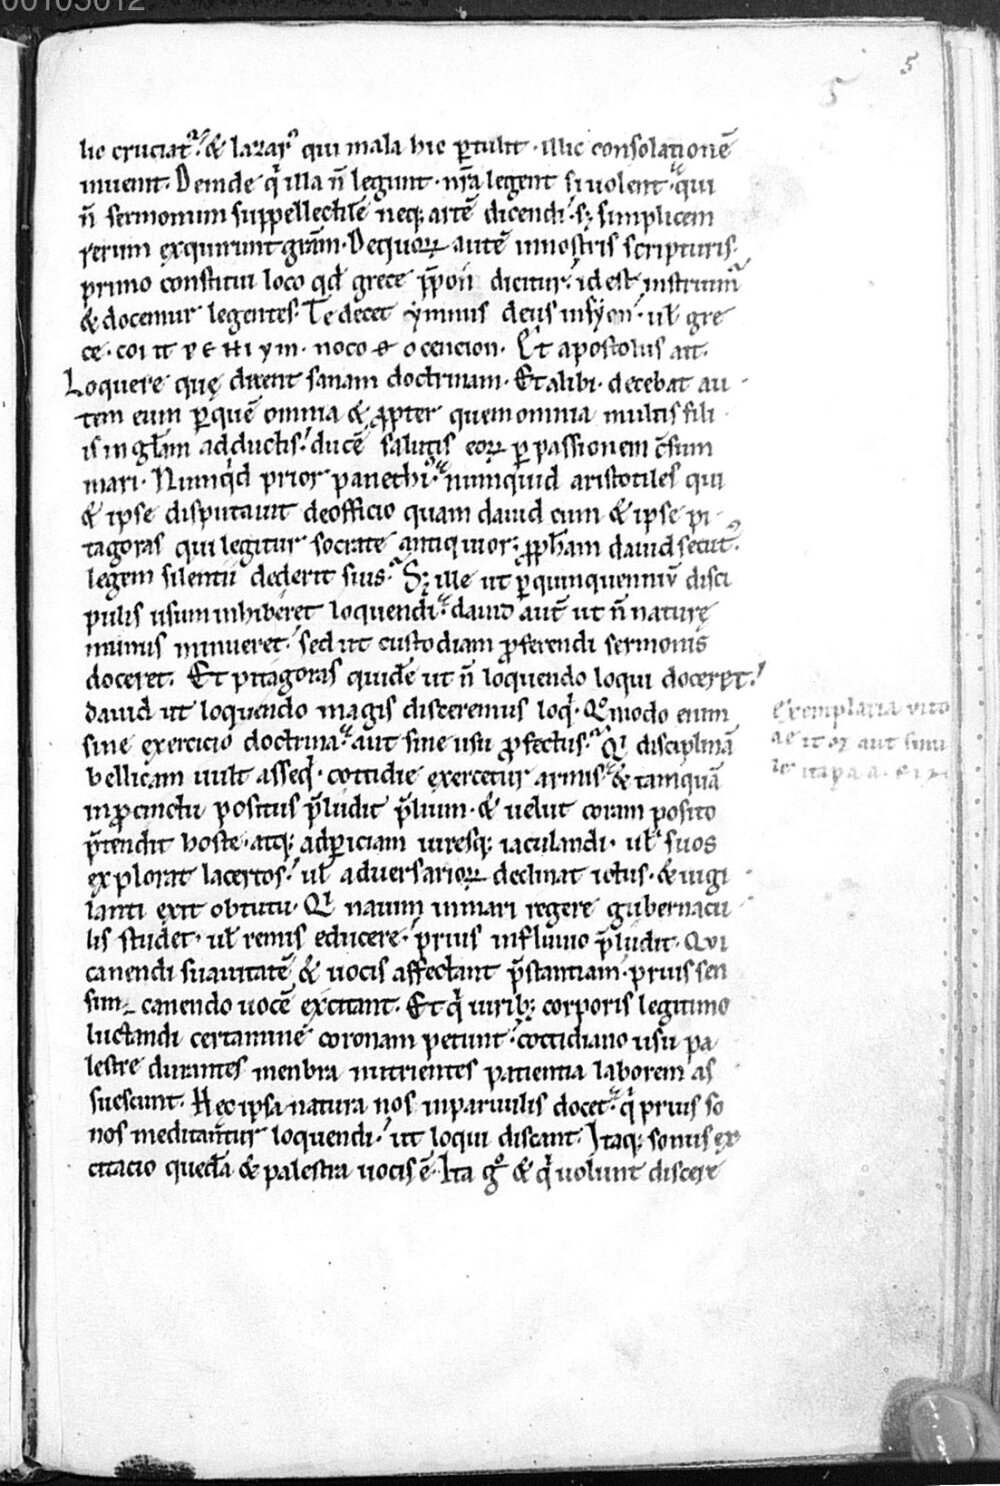 00105012
5
5
hic cruciat᷑. & lazarꝰ qui mala hic ꝑtulit · illic consolationē
inuenit. Deinde q̇ illa n̄ legunt · nr̄a legent si uolent · qui
n̄ sermonum suppellectilē neq; artē dicendi · s; simplicem
rerum exquirunt gr̄am. De quoꝝ autē in nostris scripturis
primo constitui loco qd̄ grece p̄pon dicitur · id est instrum̄
& docemur legentes. Te decet ymnus deus in syon · ul̄ gre
ce · coi
Et apostolus ait.
Loquere quę decent sanam doctrinam. Et alibi · decebat au
tem eum ꝑ quē omnia & ꝓpter quem omnia multis fili
is in gl̄am adductis · ducē salutis eoꝝ ꝑ passionem c̄sum
mari. Nunq̇d prior panethiꝰ · numquid aristotiles qui
& ipse disputauit de officio quam dauid cum & ipse pi
tagoras qui legitur socrate antiquior · ꝓph̄am dauid secutꝰ
legem silentii dederit suis. S; ille ut ꝑ quinquenniū disci
pulis usum inhiberet loquendi · dauid aut̄ ut n̄ naturę
munus minueret · sed ut custodiam ꝓferendi sermonis
doceret. Et pitagoras quidē ut n̄ loquendo loqui doceret ·
dauid ut loquendo magis disceremus loq̇. Qmodo enim
sine exercicio doctrina · aut sine usu ꝓfectus. Q̇ disciplinā
bellicam uult asseq̇ · cottidie exercetur armis · & tamquā
in ꝓcinctu positus p̄ludit p̄lium · & uelut coram posito
p̄tendit hoste · atq; ad ꝑiciam uiresq; iaculandi · ul̄ suos
explorat lacertos · ul̄ aduersarioꝝ declinat ictus · & uigi
lanti exit obtutu. Q̇ nauim in mari regere gubernacu
lis studet · ul̄ remis educere · prius in fluuio p̄ludit. Qui
canendi suauitatē & uocis affectant p̄stantiam · prius sen
sim canendo uocē excitant. Et q̇ uirib; corporis legitimo
luctandi certamine coronam petunt · cottidiano usu pa
lestre durantes menbra nutrientes patientia laborem as
suescunt. Hec ipsa natura nos in paruulis docet · q̇ prius so
nos meditantur loquendi · ut loqui discant. Itaq; sonus ex
citacio quedā & palestra uocis ē. Ita gͦ & q̇ uolunt discere
Exemplaria
aut simi